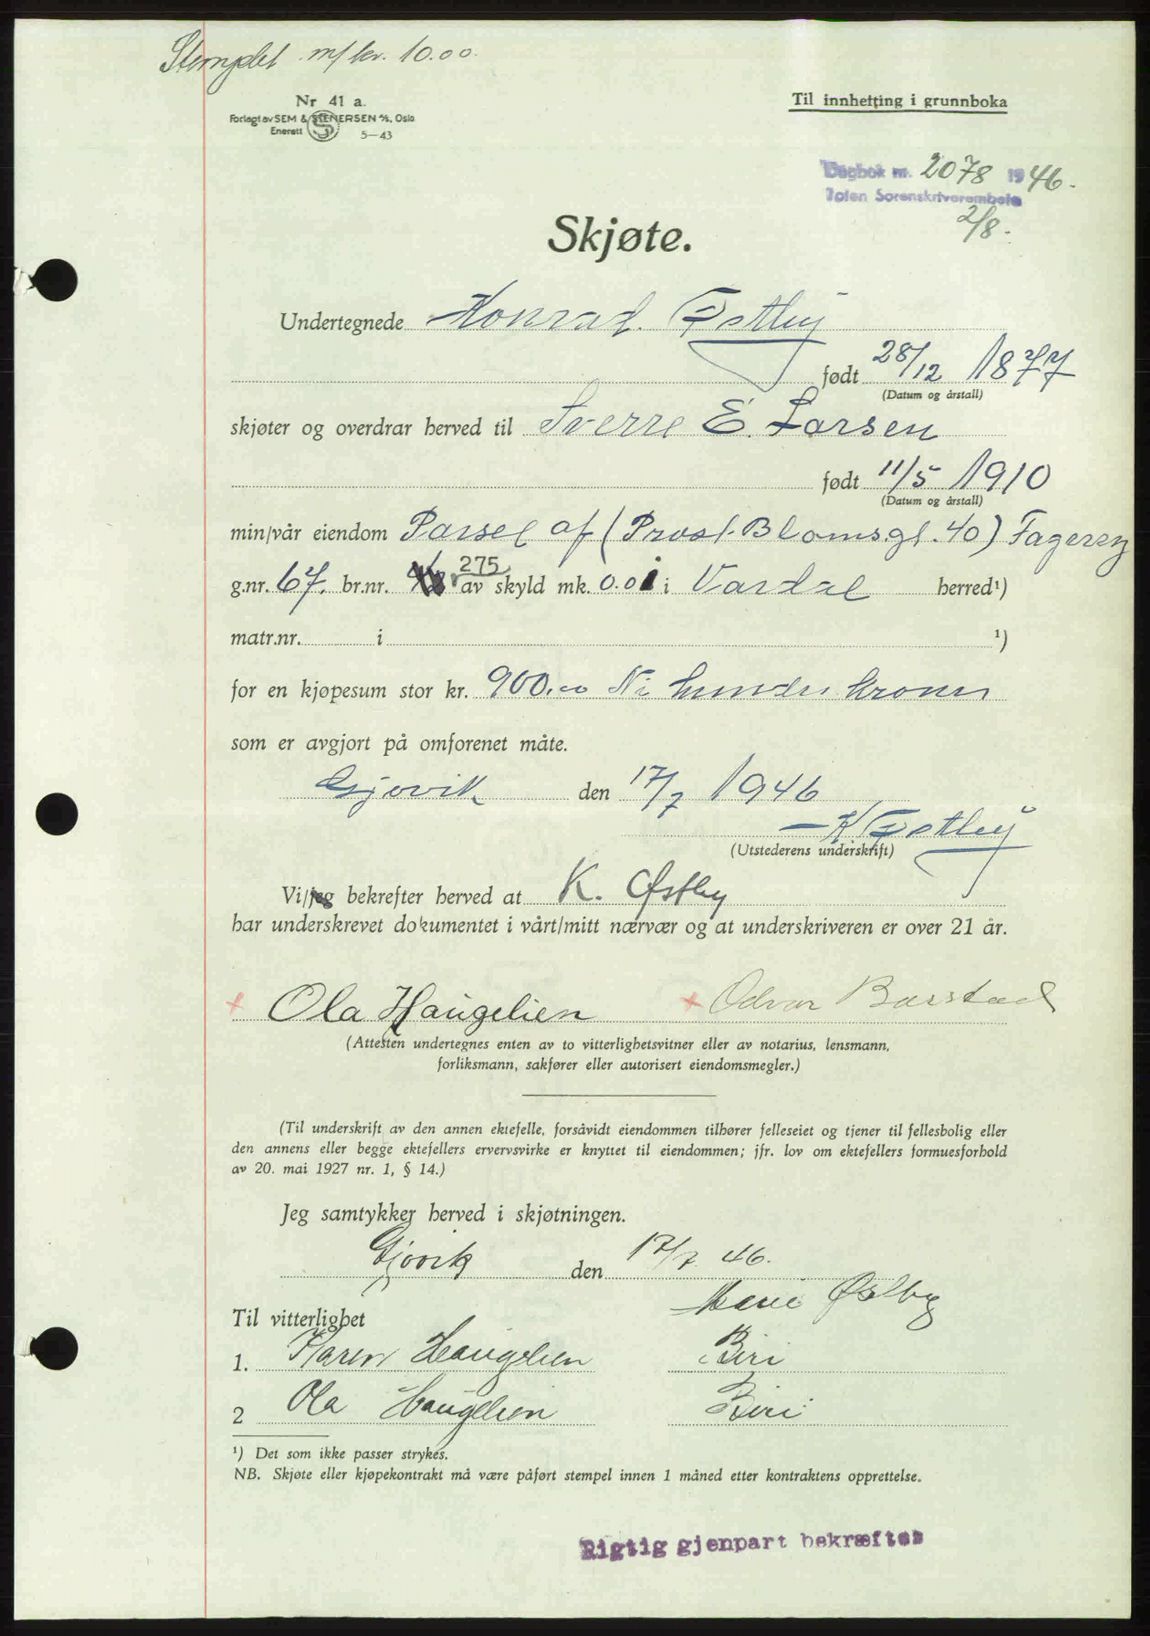 Stemplet m/kr. 10.00.
Nr 41 a.
Forlagt av SEM & STENERSEN A/S, Oslo
Enerett S 5-43
Til innhefting i grunnboka
Dagbok nr. 2078 1946.
Toten Sorenskriverembete
2/8.
Skjøte.
Undertegnede Konrad Østby
født 28/12 1877
(Datum og årstall)
skjøter og overdrar herved til Sverre E. Larsen
født 11/5 1910
(Datum og årstall)
min/vår eiendom Parsel af (Prost Blomsgt. 40) Fagerøy
275
g.nr. 67. br.nr. av skyld mk. 0.01 i Vardal herred¹)
matr.nr. i ¹)
for en kjøpesum stor kr. 900.00 Ni hundre kroner
som er avgjort på omforenet måte.
Gjøvik den 17/7 1946
K Østby
(Utstederens underskrift)
Vi/jeg bekrefter herved at K. Østby
har underskrevet dokumentet i vårt/mitt nærvær og at underskriveren er over 21 år.
+ Ola Haugelien + Odvar Barstad
(Attesten undertegnes enten av to vitterlighetsvitner eller av notarius, lensmann,
forliksmann, sakfører eller autorisert eiendomsmegler.)
(Til underskrift av den annen ektefelle, forsåvidt eiendommen tilhører felleseiet og tjener til fellesbolig eller
den annens eller begge ektefellers ervervsvirke er knyttet til eiendommen; jfr. lov om ektefellers formuesforhold
av 20. mai 1927 nr. 1, § 14.)
Jeg samtykker herved i skjøtningen.
Gjøvik den 17/7. 46.
Marie Østby
Til vitterlighet
1. Karen Haugelien Biri
2 Ola Haugelien Biri
¹) Det som ikke passer strykes.
NB. Skjøte eller kjøpekontrakt må være påført stempel innen 1 måned etter kontraktens opprettelse.
Rigtig gjenpart bekræftes